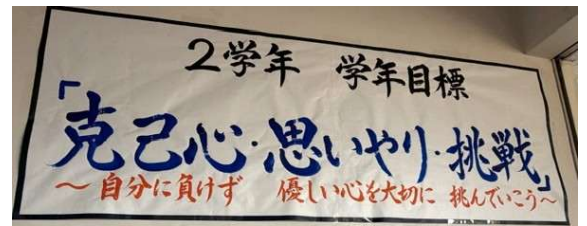 2学年 学年目標
「克己心・思いやり・挑戦」
〜自分に負けず 優しい心を大切に 挑んでいこう〜